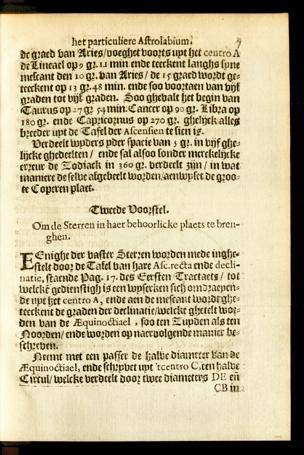 het particuliere Astrolabium. 9
de graed van Aries/ voeghet voorts upt het centro A
de Lineael op 9 gr. 12 min ende teeckent langhs syne
mescant den 10 gr. van Aries/ de 15 graed wordt ge-
teeckent op 13 gr. 48 min. ende soo voortaen van vijf
graden tot vijf graden. Soo ghevalt het begin van
Taurus op 27 gr 54 min. Cancer op 90 gr. Libra op
180 gr. ende Capricornus op 270 gr. ghelijck alles
breeder upt de Tafel der Ascensien te sien is.
Verdeelt wyders yder spacie van 5 gr. in vijf ghe-
lijcke ghedeelten/ ende sal alsoo sonder merckelijcke
erreur de Zodiack in 360 gr. verdeelt zijn/ in wat
maniere de selve afgebeelt worden/ aenwyset de groo-
te Coperen plaet.
Tweede Voorstel.
Om de Sterren in haer behoorlicke plaets te bren-
ghen.
EEnighe der vaster Sterren worden mede inghe-
stelt door de Tafel van hare Asc. recta ende decli-
natie, staende Pag. 17. des Eersten Tractaets/ tot
welcke gedienstigh is een wyserken sich omdraeyen-
de upt het centro A, ende aen de mescant wordt ghe-
teeckent de graden der declinatie/ welcke ghetelt wor-
den van de Æquinoctiael, soo ten Zuyden als ten
Noorden/ ende worden op naervolgende manier be-
schreven.
Neemt met een passer de halve diameter van de
Æquinoctiael, ende schryvet upt 'tcentro C, een halve
Circul/ welcke verdeelt door twee diameters DE en
CB in